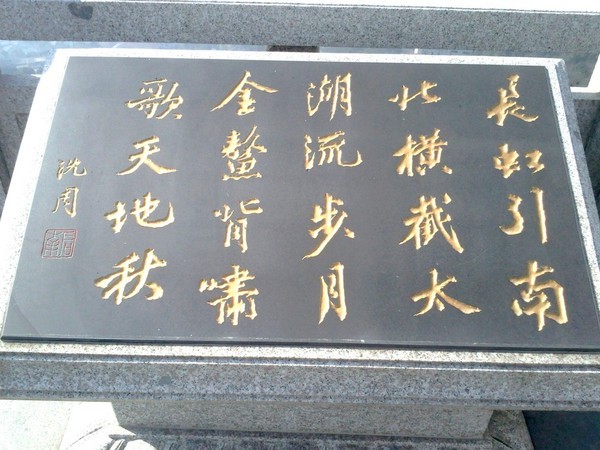 長虹引南
北橫截太
湖流步月
金鰲背嘯
歌天地秋
沈周